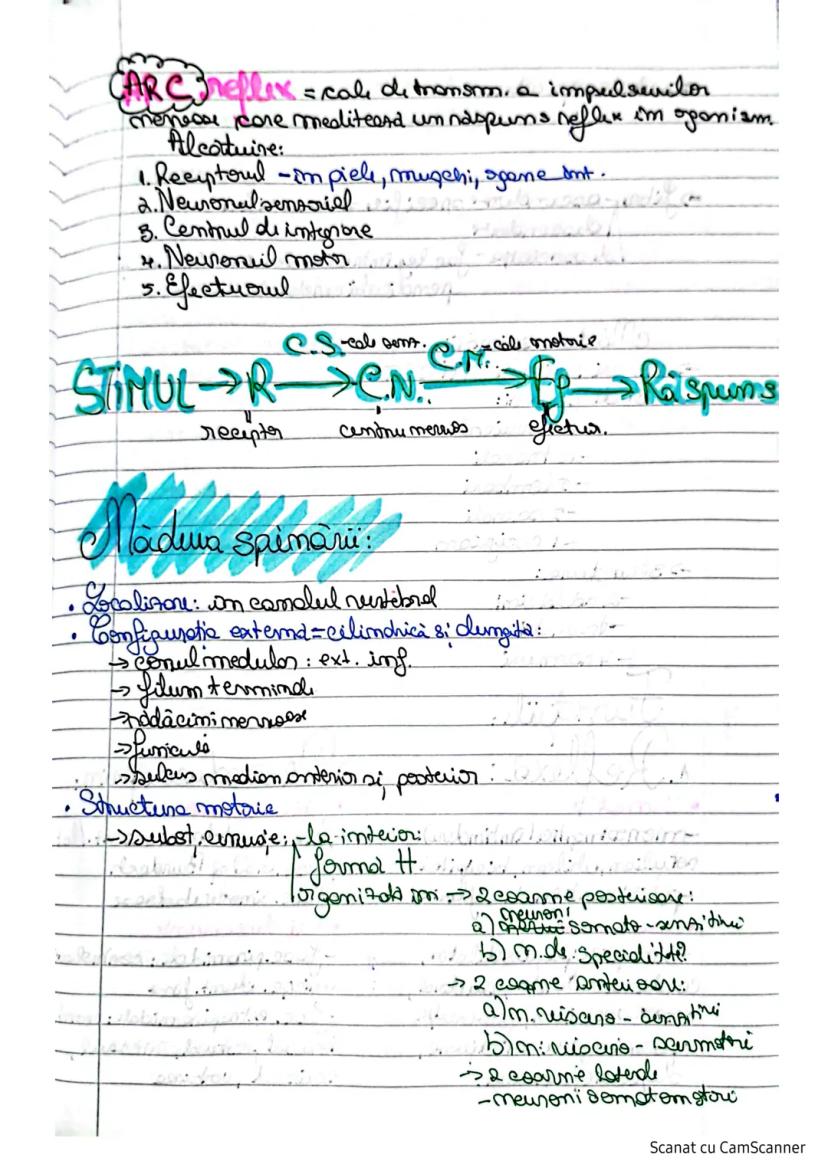 ARC reflex = cale de transm. a impulsurilor
nervoase care mediteasă un răspuns reflex în oganism
Alcătuire:
1. Receptorul - în piele, mușchi, ogane int.
2. Neuronul senzorial
3. Centrul de integrare
4. Neuronul motor
5. Efectuorul
C.S. - cale senz. C.M. = cale motorie
STIMUL → R → C.N. → Ef → Răspuns
receptor centru nervos efectur.
Măduva spinării:
• Localizare: în canalul vertebral
• Configurația externă = cilindrică și alungită:
→ conul medular: ext. inf.
→ filum terminale
→ rădăcini nervoase
→ funicule
→ sulcus median anterior și posterior
• Structura motorie
→ subst. cenușie: - la interior:
forma H
organizată în: → 2 coarne posterioare:
a) neuroni somato-senzitivi
b) n. de
→ 2 coarne anterioare:
a) n. viscero-senzitivi
b) n. viscero-
→ 2 coarne laterale
- neuroni somatomotori
Scanat cu CamScanner